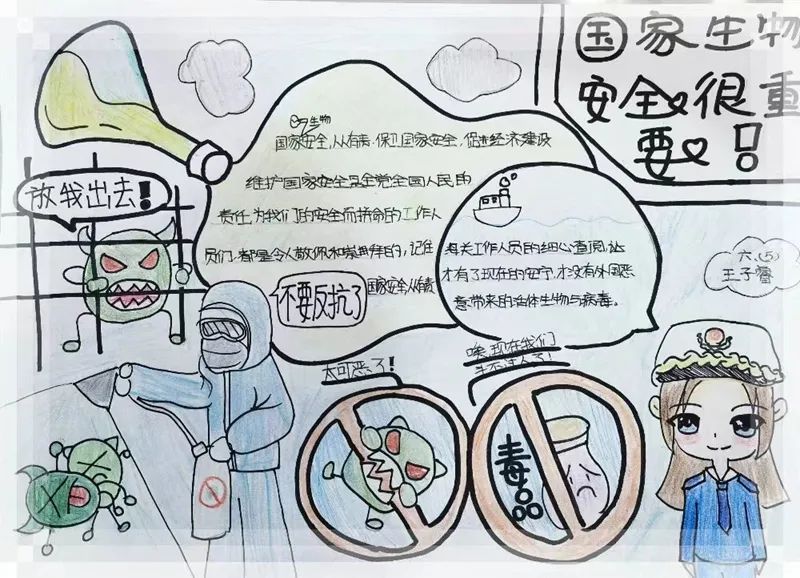 国家生物
安全很重
要！
生物
国家安全,人人有责,保卫国家安全,促进经济建设
维护国家安全是全党全国人民的
责任,为我们的安全而拼命的工作人
员们,都是令人敬佩和崇拜的,记住
国家安全人人有责
放我出去！
不要反抗了
海关工作人员的细心查阅,这
才有了现在的安宁,才没有外国恶
意带来的活体生物与病毒。
六.(5)
王子睿
太可恶了!
唉,现在我们
毒品